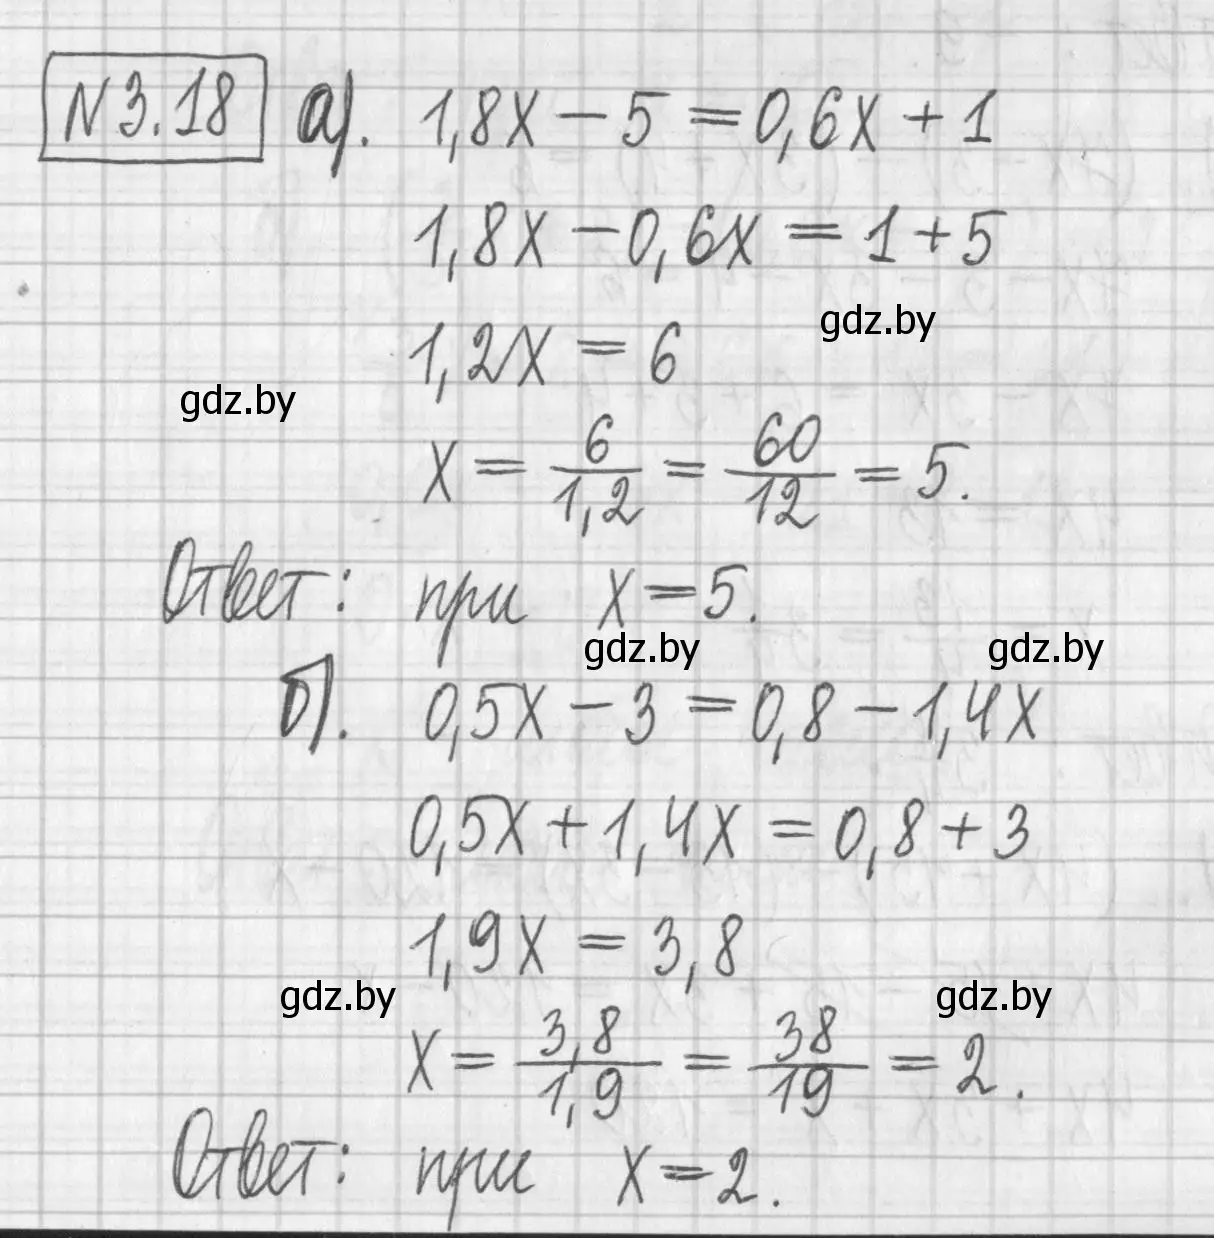 N 3.18 а). 1,8x − 5 = 0,6x + 1
1,8x − 0,6x = 1 + 5
gdz.by
1,2x = 6
gdz.by
x = 6/1,2 = 60/12 = 5.
Ответ: при x = 5.
gdz.by gdz.by
б). 0,5x − 3 = 0,8 − 1,4x
0,5x + 1,4x = 0,8 + 3
1,9x = 3,8
gdz.by gdz.by
x = 3,8/1,9 = 38/19 = 2.
Ответ: при x = 2.